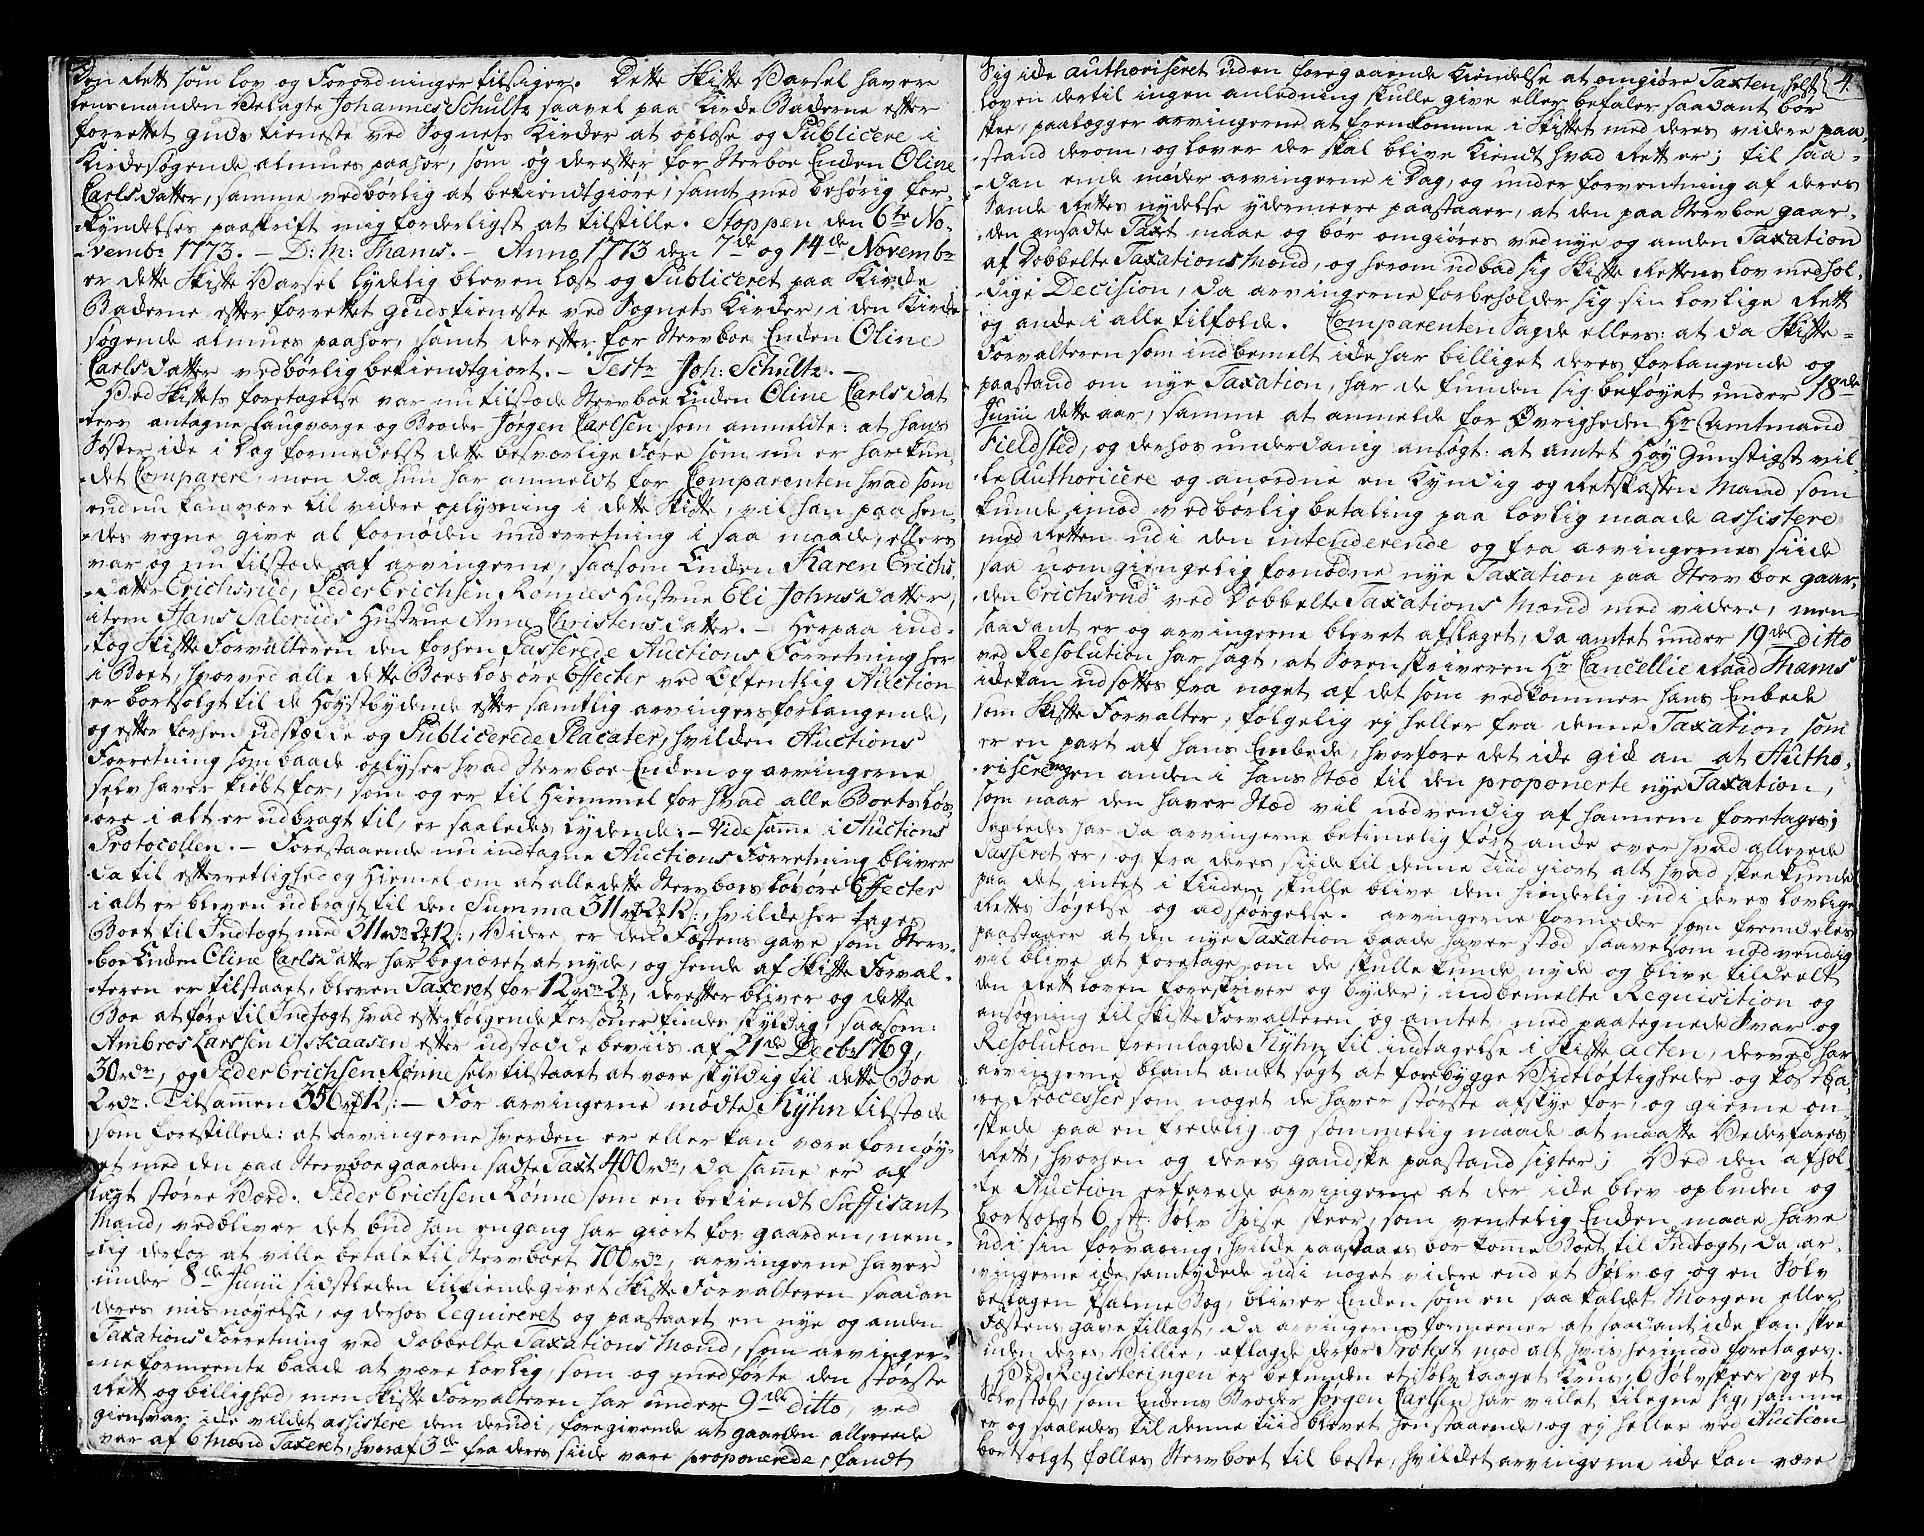 den Rett som lov og Forordninger tilsiger. Dette Skifte Varsel haver
Lensmanden Velagte Johannes Schultz saavel paa Kirke Bakerne efter
forrettet guds tieneste ved Sognets Kirker at oplæse og Publicere i
Kirkesøgende almues paahør, som og derefter for Sterboe Enken Oline
Carlsdatter, samme vedbørlig at bekiendtgiøre, samt med behørig for-
kyndelses paaskrift mig forderligst at tilstille. Stoppen den 6te No-
vembr 1773. - D: M: Thams. - Anno 1773 den 7de og 14de Novembr
er dette Skifte Varsel lydelig bleven læst og Publiceret paa Kirke
Bakerne efter forrettet guds tieneste ved Sognets Kirker, i den Kirke
søgende almues paahør, samt derefter for Stervboe Enken Oline
Carlsdatter vedbørlig bekiendtgiort. - Testr Joh: Schultz. -
Ved Skiftets foretagelse var nu tilstæde Stervboe Enken Oline Carlsdat
ters antagne Laugværge og Broder Jørgen Carlsen, som anmeldte: at hans
Søster ike i Dag formedelst dette besværlige føre som nu er har kun-
det Comparere, men da hun har anmeldt for Comparenten hvad som
endnu kan være til videre oplysning i dette Skifte, vil han paa hen-
des vegne give al fornøden underretning i saa maade, ellers
var og nu tilstæde af arvingerne, saasom Enken Karen Erichs
datter Erichsrud, Peder Erichsen Rønnes Hustrue Eli Johnsdatter,
item Hans Saleruds Hustrue Anne Christensdatter. - Herpaa ind-
tog Skifte Forvalteren den forhen Passerede Auctions Forretning her
i Boet, hvorved alle dette Boes Løsøre Effecter ved Offentlig Auction
er bortsolgt til de Høystbydende efter samtlig arvingers forlangende,
og efter forhen udstædde og Publicerede Placater, hvilken Auctions
Forretning som baade oplyser hvad Stervboe Enken og arvingerne
selv haver kiøbt for, som og er til Hiemmel for hvad alle Boets Løs-
øre i alt er udbragt til, er saaledes lydende: - Vide samme i Auctions
Protocollen. - Forestaaende nu indtagne Auctions Forretning bliver
da til efterretlighed og Hiemel om at alle dette Sterboes Løsøre Effecter
i alt er bleven udbragt til den Summa 311 rd 2 12 s:, hvilke her tages
Boet til Indtægt med 311 rdr 2 12:, Videre er den Fæstens gave som Sterv-
boe Enken Oline Carlsdatter har begiæret at nyde, og hende af Skifte Forval-
teren er tilstaaet, bleven Taxeret for 12 rdr 2, derefter bliver og dette
Boe at føre til Indtægt hvad efterfølgende Personer findes skyldig, saasom:
Ambros Larssen efter udstædde beviis af 21de Decbr 1769,
30 rdr, og Peder Erichsen Rønne selv tilstaaet at være skyldig til dette Boe
2 rdr. Tilsammen 356 rd 12 s: - For arvingerne mødte Kyhn tilstæde
som forestillede: at arvingerne hverken er eller kan være fornøy-
et med den paa Stervboe gaarden sadte Taxt 400 rdr, da samme er af
langt større Værd. Peder Erichsen Rønne som en bekiendt Suffisant
Mand, vedbliver det bud han engang har giort for gaarden, nem-
lig derfor at ville betale til Stervboet 700 rdr, arvingerne haver
under 8de Junii sidstleden tilkiendegivet Skifte Forvalteren saadan
deres misnøyelse, og derhos requireret og paastaaet en nye og anden
Taxations Forretning ved dobbelte Taxations Mænd, som arvinger-
ne formeente baade at være lovlig, som og medførte den største
Rett og billighed, men Skifte Forvalteren har under 9de ditto, ved
giensvar ike vildet assistere dem derudi, foregivende at gaarden allereede
var af 6 Mænd Taxeret, hvoraf 3de fra deres siide vare proponerede, fandt
4.
Sig ike authoriseret uden foregaaende Kiendelse at omgiøre Taxten, helst
loven dertil ingen anledning skulle give eller befaler saadant bør
skee, paalægger arvingerne at fremkomme i Skiftet med deres videre paa-
stand derom, og lover der skal blive kiendt hvad Rett er; til saa-
dan ende møder arvingerne i Dag, og under forventning af deres
Sande Rettes nydelse ydermeere paastaaer, at den paa Stervboe gaar-
den ansadte Taxt maae og bør omgiøres ved nye og anden Taxation
af Dobbelte Taxations Mænd, og herom udbad sig Skifte Rettens lov medhol-
dige Decision, da arvingerne forbeholder sig sin lovlige Rett
og anke i alle tilfælde. Comparenten Sagde ellers: at da Skifte-
Forvalteren som indbemelt ike har billiget deres forlangende og
paastand om nye Taxation, har de funden sig beføyet under 18nde
Junii dette aar, samme at anmelde for Øvrigheden Hr Amtmand
Fieldsted, og derhos underdanig ansøgt: at amtet Høy Gunstigst vil-
le Authoricere og anordne en Kyndig og Retskaffen Mand som
kunde imod vedbørlig betaling paa lovlig maade assistere
med Retten udi den intenderende og fra arvingernes siide
saa uomgiengelig fornødne nye Taxation paa Stervboe gaar-
den Erichsrud ved Dobbelte Taxations Mænd med videre, men
saadant er og arvingerne blevet afslaget, da amtet under 19de ditto
ved Resolution har sagt, at Sorenskriveren Hr Cancellie Raad Thams
ike kan udsættes fra noget af det som vedkommer hans Embede
som Skifte Forvalter, følgelig ey heller fra denne Taxation som
er en part af hans Embede, hvorfore det ike gik an at Autho-
risere nogen anden i hans Stæd til den proponerte nye Taxation,
som naar den haver Stæd vil nødvendig af hannem foretages;
Saaledes har da arvingerne betimelig ført anke over hvad allerede
Passeret er, og fra deres siide til denne tiid giort alt hvad skee kunde
paa det intet i tiiden skulle blive dem hinderlig udi deres lovlige
Rettes Søgelse og adspørgelse. arvingerne formoder som fremdeles
paastaaer at den nye Taxation baade haver stæd saavelsom nødvendig
vil blive at foretage om de skulle kunde nyde og blive tildeelt
den Rett loven foreskriver og byder; indbemelte Requisition og
ansøgning til Skifte Forvalteren og amtet, med paategnede Svar og
Resolution fremlagde Kyhn til indtagelse i Skifte acten, derved har
arvingerne blant andet søgt at forebygge Vidtløftigheder og kostba-
re Processer som noget de haver største afskye for, og gierne øn-
skede paa en fredelig og sommelig maade at maatte Vederfares
Rett, hvorhen og deres gandske paastand sigter; Ved den afhol-
te Auction erfarede arvingerne at der ike blev opbuden og
bortsolgt 6 stk: Sølv Spise skeer, som ventelig Enken maae have
udi sin forvaring, hvilke paastaaes bør komme Boet til Indtægt, da ar-
vingerne ike samtykede udi noget videre end et Sølv æg og en Sølv
beslagen Psalme Bog, bliver Enken som en saa kaldet Morgen eller
Fæstens gave tillagt, da arvingerne formeener at saadant ike kan skee
uden deres Villie, aflagde derfor Protest mod alt hvis herimod foretages.
Ved Registeringen er befunden et Sølv laaget Krus, 6 Sølvskeer og et
Sølvstøb, som Enkens Broder Jørgen Carlsen har villet tilegne sig, samme
er og saaledes til denne tiid blevet henstaaende, og ey heller ved Auction
bortsolgt følles Stervboet til beste, hvilket arvingerne ike kan være